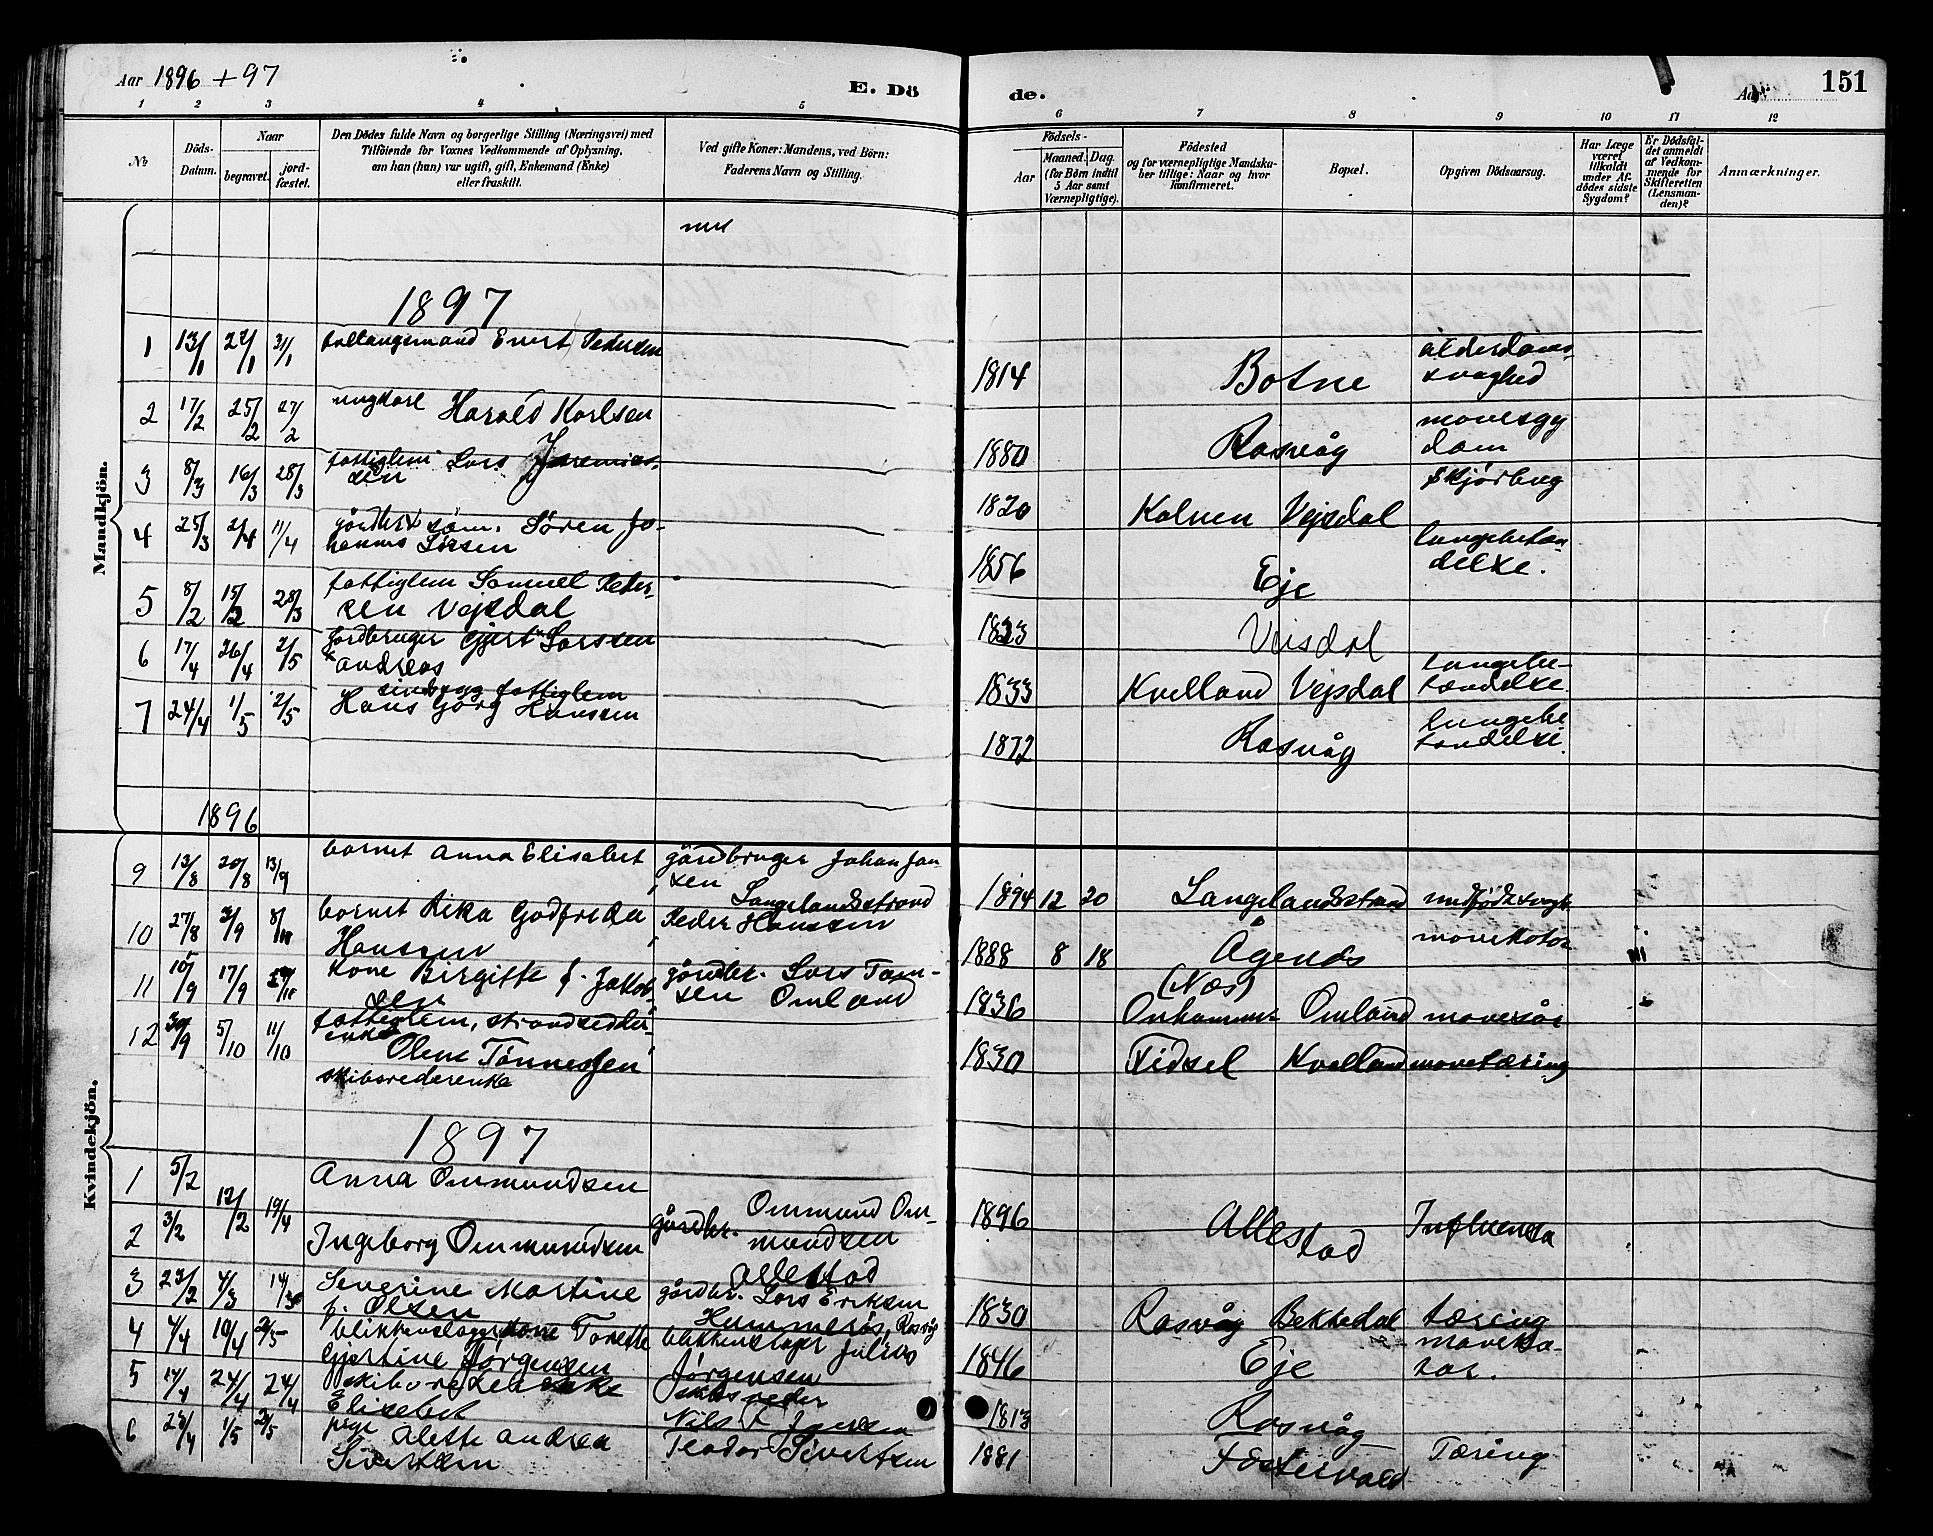 Aar 1896 + 97
E. Dö
de.
Aar
151
1 2 3 4 5 6 7 8 9 10 11 12
No
Döds-
Datum.
Naar
begravet.
jord-
fæstet.
Den Dödes fulde Navn og borgerlige Stilling (Næringsvei) med
Tilföiende for Voxnes Vedkommende af Oplysning,
om han (hun) var ugift, gift, Enkemand (Enke)
eller fraskilt.
Ved gifte Koner: Mandens, ved Börn:
Faderens Navn og Stilling.
Födsels-
Aar
Maaned. Dag.
(for Börn indtil
5 Aar samt
Værnepligtige).
Födested
og for værnepligtige Mandska-
ber tillige: Naar og hvor
konfirmeret.
Bopæl.
Opgiven Dödsaarsag.
Har Læge
været
tilkaldt
under Af-
dödes sidste
Sygdom?
Er Dödsfal-
det anmeldt
af Vedkom-
mende for
Skifteretten
(Lensman-
den)?
Anmærkninger.
Mandkjön.
1897
1 13/1 22/1 31/1 Pedersen 1814 Botne alderdoms-
svaghed
2 17/2 25/2 27/2 ungkarl Harald Karlsen 1880 Rasvåg mavesyg
dom
3 8/3 16/3 28/3 fattiglem Lars Jeremias-
sen 1820 Kalven Vejsdal
4 25/3 2/4 11/4 Søren Jo-
hannes 1856 Eje lungebetæn-
delse.
5 8/2 15/2 28/3 fattiglem Samuel Peder-
sen Vejsdal 1823 Veisdal
6 17/4 26/4 2/5 gårdbruger Gjert Larssen
andreas 1833 Kvelland Vejsdal lungebe-
tændelse.
7 24/4 1/5 2/5 sindssyg fattiglem
Hans Georg Hanssen 1872 Rasvåg lungebe
tændelse.
1896
Kvindekjön.
9 13/8 20/8 13/9 barnet Anna Elisabet gårdbruger Johan Jan-
sen Langelandsstrand 1894 12 20 Langelandsstrand medfødt svagh
10 27/8 3/9 barnet Rika Godfreda
Hanssen Peder Hanssen 1888 8 18 Ågenes
(Næs) mavekatar
11 10/9 17/9 kone Birgitte f. Jakob-
sen gårdbr. Lars Tom-
sen Omland 1836 Omland mavesår
12 30/9 5/10 11/10 fattiglem, strandsidder
enke Olene Tønnessen 1830 Fidsel Kvelland mavetæring
skibsrederenke
1897
1 5/2 Anna Ommundsen
12/2 19/4
2 3/2 Ingeborg Ommundsen gårdbr. Ommund Om-
mundsen
Allestad 1896 Allestad Influensa
3 23/2 4/3 14/3 Severine Martine
f. Olsen gårdbr. Lars Eriksen
Hummerås, Rasvåg 1830 Rasvåg Bekkedal tæring
4 4/4 19/4 2/5 blikkenslagerkone Torette
Gjertine Jørgensen blikkenslager Julius
Jørgensen 1846 Eje maveka-
tar.
5 17/4 24/4 24/4 skibsrederenke
Elisabet skibsreder
Nils 1813 Rasvåg
6 24/4 1/5 2/5 pige Alette Andrea
Sivertsen Teodor Sivertsen 1881 Fostervold Tæring